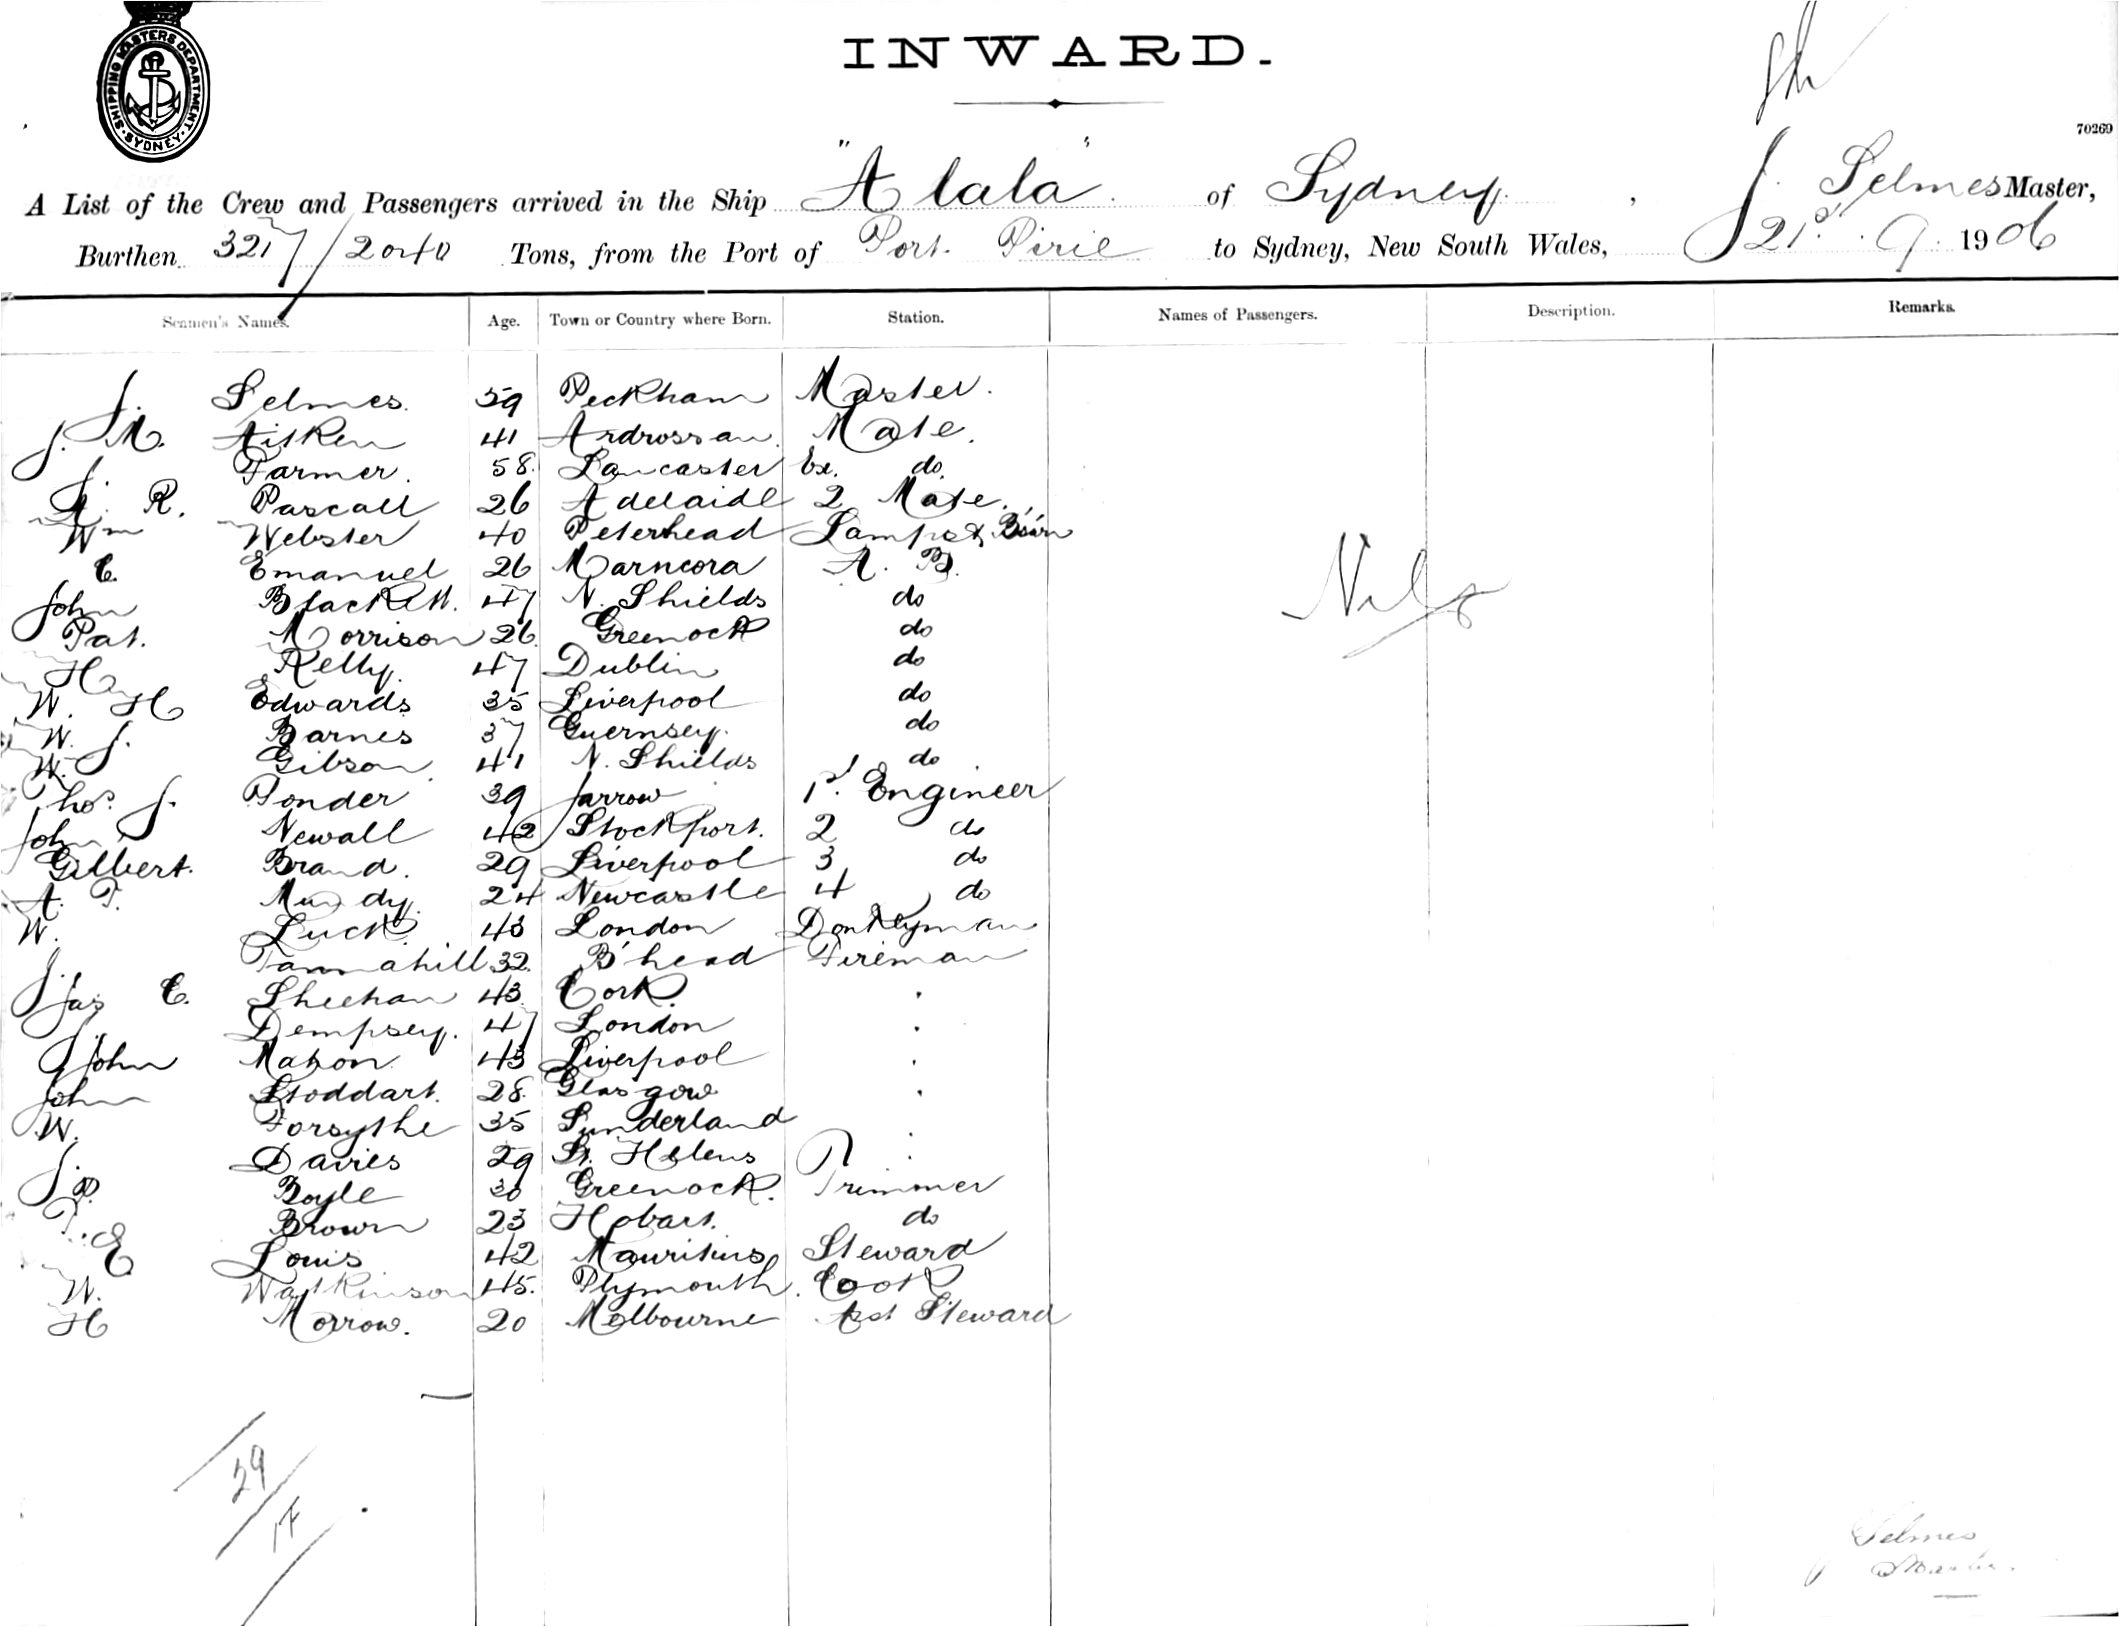 SHIPPING MASTERS DEPARTMENT · SYDNEY ·
INWARD.
70269
A List of the Crew and Passengers arrived in the Ship "Alala" of Sydney, J. Selmes Master,
Burthen 3217/2040 Tons, from the Port of Port Pirie to Sydney, New South Wales, 21st 9 1906
Seamen's Names. Age. Town or Country where Born. Station. Names of Passengers. Description. Remarks.
J. Selmes. 59 Peckham Master.
J. M. Aitken 41 Ardrossan. Mate.
J. Farmer. 58. Lancaster Ex. do.
A. R. Pascall 26 Adelaide 2 Mate.
Wm Webster 40 Peterhead Lamps & Bosn
C. Emanuel 26 A. B.
John Blackett. 47 N. Shields do
Pat. Morrison 26. Greenock do
Hy Kelly. 47 Dublin do
W. H Edwards 35 Liverpool do
W. J. Barnes 37 Guernsey. do
W. Gibson 41 N. Shields do
Thos. J. Ponder 39 Jarrow 1st. Engineer
John Newall 42 Stockport. 2 do
Gilbert. Brand. 29 Liverpool 3 do
A. T. Mundy. 24 Newcastle 4 do
W. Luck 43 London Donkeyman
J. Tannahill 32. B'head Fireman
Jas C. Sheehan 43. Cork. "
J. Dempsey. 47 London "
John Mahon 43 Liverpool "
John Stoddart. 28. Glasgow "
W. Forsythe 35 Sunderland "
J. Davies 29 St. Helens "
P. Boyle 30 Greenock. Trimmer
T. Brown 23 Hobart. do
E Louis 42 Mauritius Steward
W. Watkinson 45. Plymouth. Cook
H Morrow. 20 Melbourne Asst Steward
Nil
29
J Selmes
Master.